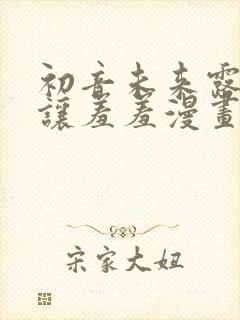 初音未来露
讓羞羞漫畫
宋家大妞